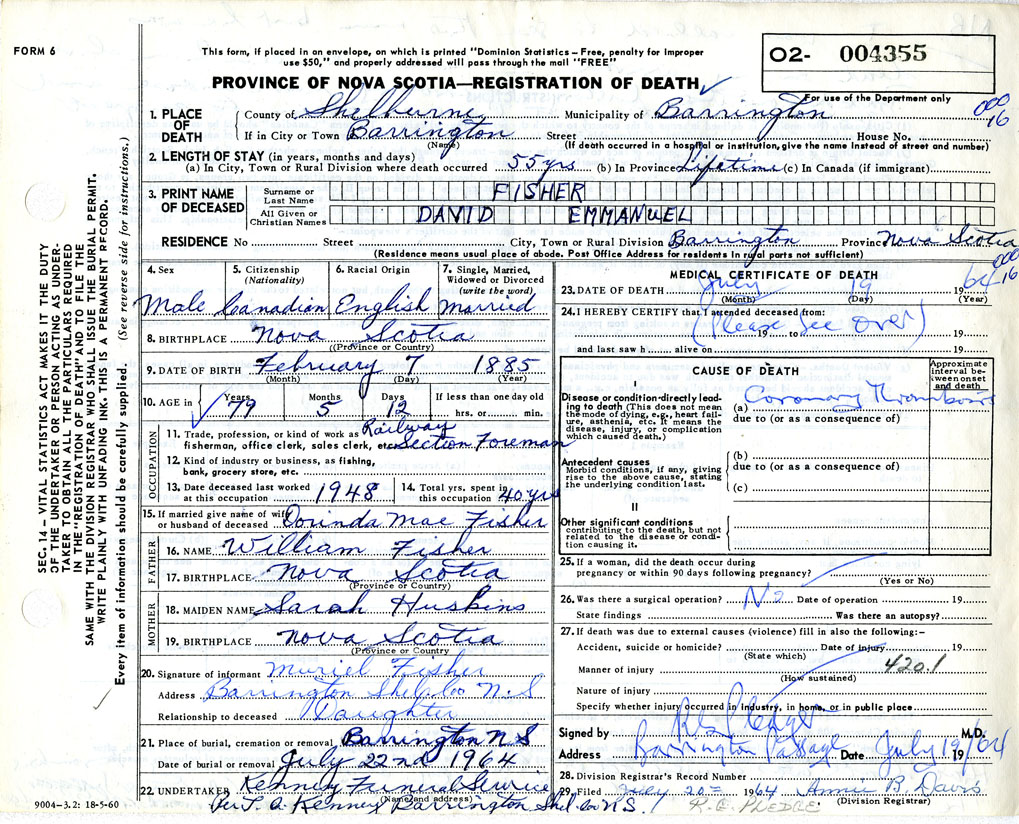 FORM 6
This form, if placed in an envelope, on which is printed "Dominion Statistics – Free, penalty for improper
use $50," and properly addressed will pass through the mail "FREE"
O2- 004355
PROVINCE OF NOVA SCOTIA—REGISTRATION OF DEATH
For use of the Department only
000
16
1. PLACE OF DEATH
County of Shelburne Municipality of Barrington
If in City or Town Barrington Street House No.
(Name) (If death occurred in a hospital or institution, give the name instead of street and number)
2. LENGTH OF STAY (in years, months and days)
(a) In City, Town or Rural Division where death occurred 55 yrs (b) In Province Lifetime (c) In Canada (if immigrant)
3. PRINT NAME OF DECEASED
Surname or Last Name FISHER
All Given or Christian Names DAVID EMMANUEL
RESIDENCE No Street City, Town or Rural Division Barrington Province Nova Scotia
(Residence means usual place of abode. Post Office Address for residents in rural parts not sufficient)
000
16
4. Sex
Male
5. Citizenship
(Nationality)
Canadian
6. Racial Origin
English
7. Single, Married,
Widowed or Divorced
(write the word)
Married
8. BIRTHPLACE Nova Scotia
(Province or Country)
9. DATE OF BIRTH February 7 1885
(Month) (Day) (Year)
10. AGE in Years Months Days If less than one day old
79 5 12 hrs. or min.
OCCUPATION
11. Trade, profession, or kind of work as Railway
fisherman, office clerk, sales clerk, etc. Section Foreman
12. Kind of industry or business, as fishing,
bank, grocery store, etc.
13. Date deceased last worked
at this occupation 1948
14. Total yrs. spent in
this occupation 40 yrs
15. If married give name of wife
or husband of deceased Dorinda Mae Fisher
FATHER
16. NAME William Fisher
17. BIRTHPLACE Nova Scotia
(Province or Country)
MOTHER
18. MAIDEN NAME Sarah Huskins
19. BIRTHPLACE Nova Scotia
(Province or Country)
20. Signature of informant Muriel Fisher
Address Barrington Shel. Co N.S
Relationship to deceased Daughter
21. Place of burial, cremation or removal Barrington N S
Date of burial or removal July 22nd 1964
22. UNDERTAKER Kenney Funeral Service
(Name and address)
Per T. A. Kenney Barrington Shel. Co N.S.
9004–3.2: 18-5-60
MEDICAL CERTIFICATE OF DEATH
23. DATE OF DEATH July 19 1964
(Month) (Day) (Year)
24. I HEREBY CERTIFY that I attended deceased from:
(Please see over)
19 to 19
and last saw h alive on 19
CAUSE OF DEATH
Approximate
interval be-
tween onset
and death
I
Disease or condition directly lead-
ing to death (This does not mean
the mode of dying, e.g., heart fail-
ure, asthenia, etc. It means the
disease, injury, or complication
which caused death.)
(a) Coronary Thrombosis
due to (or as a consequence of)
Antecedent causes
Morbid conditions, if any, giving
rise to the above cause, stating
the underlying condition last.
(b)
due to (or as a consequence of)
(c)
II
Other significant conditions
contributing to the death, but not
related to the disease or condi-
tion causing it.
25. If a woman, did the death occur during
pregnancy or within 90 days following pregnancy?
(Yes or No)
26. Was there a surgical operation? No Date of operation 19
State findings Was there an autopsy?
27. If death was due to external causes (violence) fill in also the following:–
Accident, suicide or homicide? Date of injury 19
(State which)
Manner of injury 420.1
(How sustained)
Nature of injury
Specify whether injury occurred in industry, in home, or in public place
Signed by R E Pledge M.D.
Address Barrington Passage Date July 19 1964
28. Division Registrar's Record Number
29. Filed July 20th 1964 Annie B. Davis
(Division Registrar)
R. E. PLEDGE
SEC. 14 – VITAL STATISTICS ACT MAKES IT THE DUTY
OF THE UNDERTAKER OR PERSON ACTING AS UNDER-
TAKER TO OBTAIN ALL THE PARTICULARS REQUIRED
IN THE "REGISTRATION OF DEATH" AND TO FILE THE
SAME WITH THE DIVISION REGISTRAR WHO SHALL ISSUE THE BURIAL PERMIT.
WRITE PLAINLY WITH UNFADING INK. THIS IS A PERMANENT RECORD.
Every item of information should be carefully supplied. (See reverse side for instructions.)